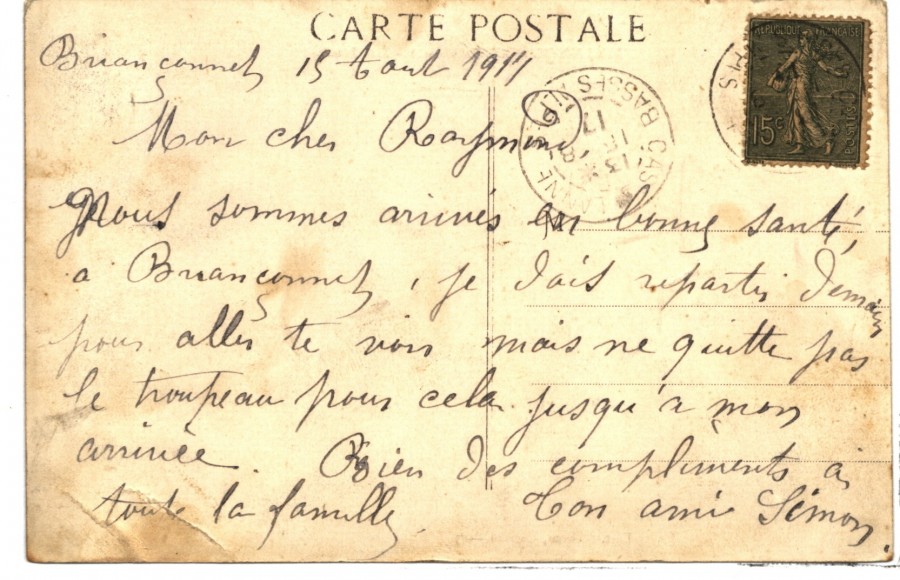 CARTE POSTALE
RÉPUBLIQUE FRANÇAISE
15c
POSTES
Briançonnet 15 Aout 1917
BASSES ALP
CASTELLANNE
Mon cher Raymond,
Nous sommes arrivés en bonne santé,
a Briançonnet, je dois repartir demain
pour aller te voir mais ne quitte pas
le troupeau pour cela jusqu'a mon
arrivée. Bien des compliments a
toute la famille. Ton ami Simon.